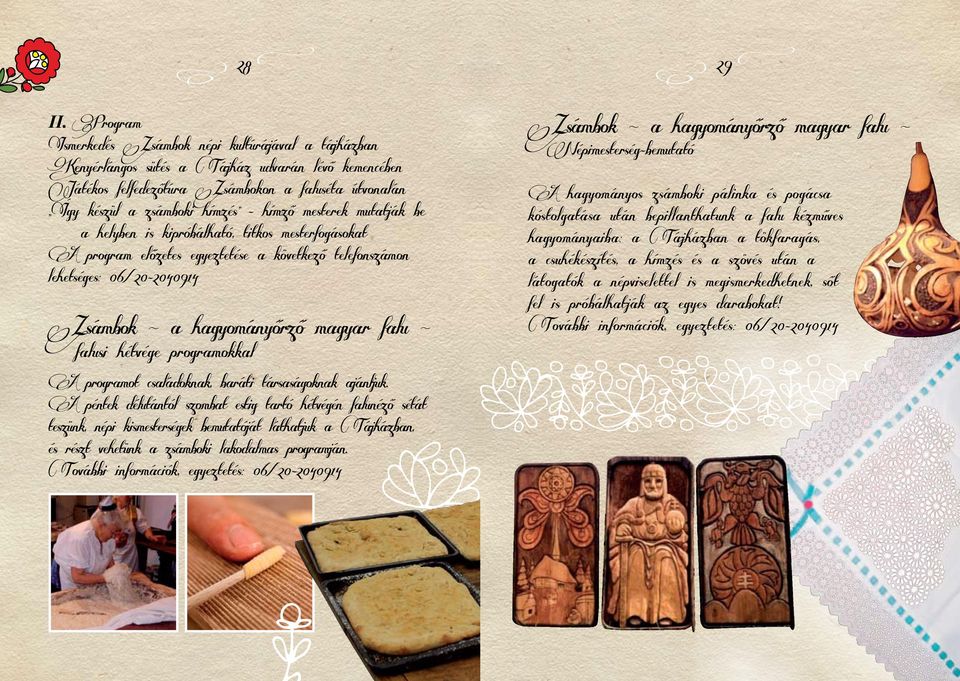 28
II. Program
Ismerkedés Zsámbok népi kultúrájával a tájházban
Kenyérlángos sütés a Tájház udvarán lévő kemencében
Játékos felfedezőtúra Zsámbokon a faluséta útvonalán
„Így készül a zsámboki hímzés" - hímző mesterek mutatják be
a helyben is kipróbálható, titkos mesterfogásokat
A program előzetes egyeztetése a következő telefonszámon
lehetséges: 06/20-2040914
Zsámbok ~ a hagyományőrző magyar falu ~
falusi hétvége programokkal
A programot családoknak, baráti társaságoknak ajánljuk.
A péntek délutántól szombat estig tartó hétvégén falunéző sétát
teszünk, népi kismesterségek bemutatóját láthatjuk a Tájházban,
és részt vehetünk a zsámboki lakodalmas programján.
További információk, egyeztetés: 06/20-2040914
29
Zsámbok ~ a hagyományőrző magyar falu ~
Népimesterség-bemutató
A hagyományos zsámboki pálinka és pogácsa
kóstolgatása után bepillanthatunk a falu kézműves
hagyományaiba: a Tájházban a tökfaragás,
a csuhékészítés, a hímzés és a szövés után a
látogatók a népviselettel is megismerkedhetnek, sőt
fel is próbálhatják az egyes darabokat!
További információk, egyeztetés: 06/20-2040914